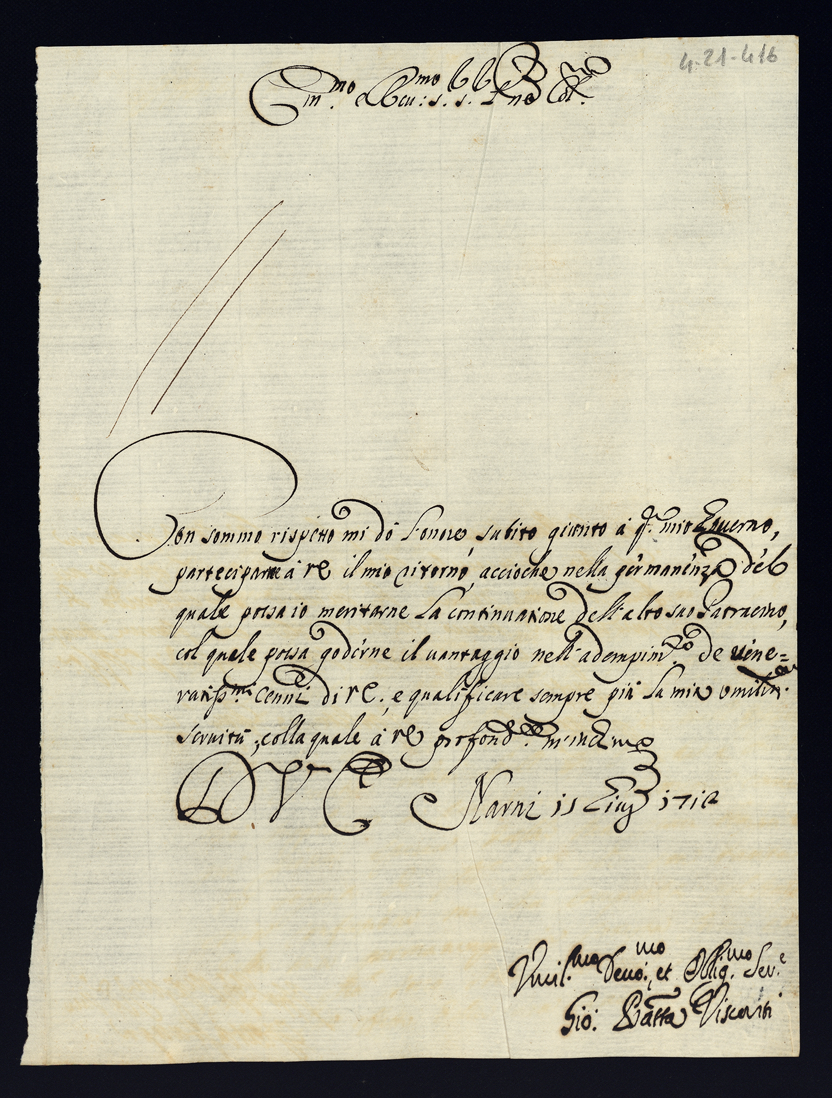 4-21-416
Em.mo e Rev.mo Sig. Sig. P.ne Col.mo
Con sommo rispetto mi dò l'onore subito giunto à q.to mio Governo,
partecipare à VE il mio ritorno, acciochè nella permanenza del
quale possa io meritarne la continuatione dell'alto suo Patrocinio,
col quale possa goderne il vantaggio nell'adempim.to de vene=
ratiss.mi cenni di VE, e qualificare sempre più la mia umiliss.a
servitù, colla quale à VE profond.te m'inchino
D V E Narni 15 Giug.o 1712
Umil.mo Devo.mo et Oblig.mo Ser.e
Gio: Batta Visconti